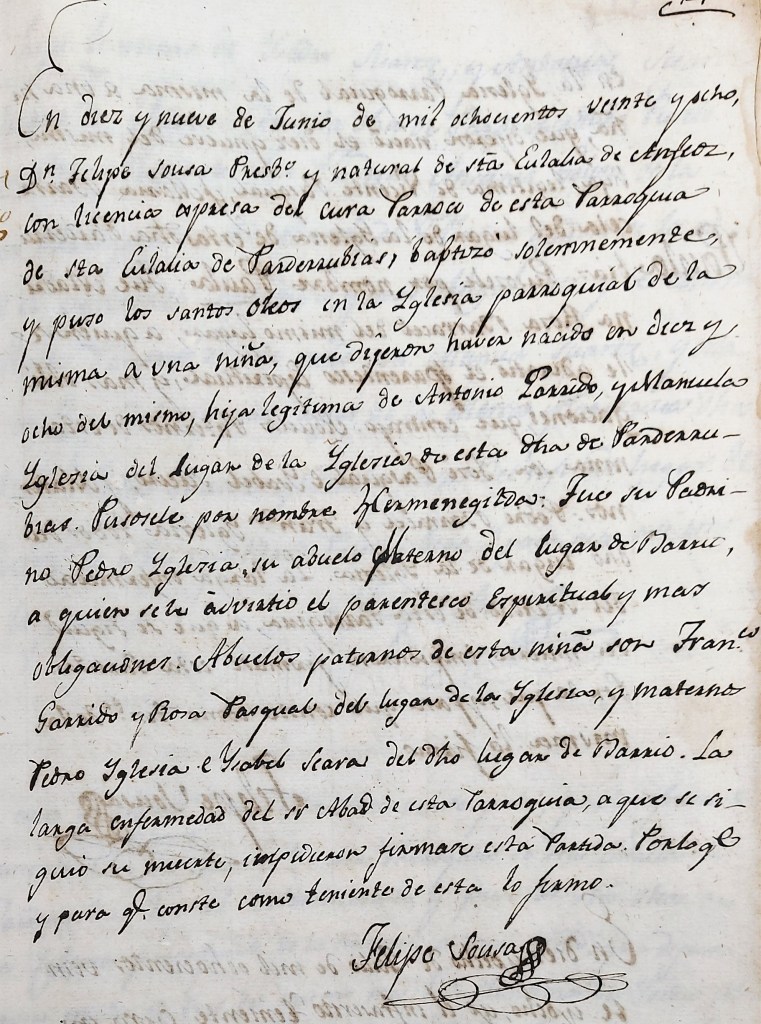 En diez y nueve de Junio de mil ochocientos veinte y ocho,
Dn. Felipe Sousa Presbo. y natural de sta Eulalia de Anfeoz,
con licencia expresa del cura Parroco de esta Parroquia
de sta Eulalia de Parderrubias, baptizó solemnemente,
y puso los santos Oleos en la Yglesia parroquial de la
misma a una niña, que dijeron haver nacido en diez y
ocho del mismo, hija legitima de Antonio Garrido, y Manuela
Yglesia del lugar de la Yglesia de esta dha de Parderru-
bias. Pusosele por nombre Hermenegilda: Fue su Padri-
no Pedro Yglesia, su abuelo Materno del lugar de Barrio,
a quien se le advirtio el parentesco Espiritual y mas
obligaciones. Abuelos paternos de esta niña son Franco.
Garrido y Rosa Pasqual del lugar de la Yglesia, y maternos
Pedro Yglesia e Ysabel Seara del dho lugar de Barrio. La
larga enfermedad del sr Abad de esta Parroquia, a que se si-
guio su muerte, impidieron firmase esta Partida. Por lo q.e
y para q.e conste como teniente de esta lo firmo.
Felipe Sousa